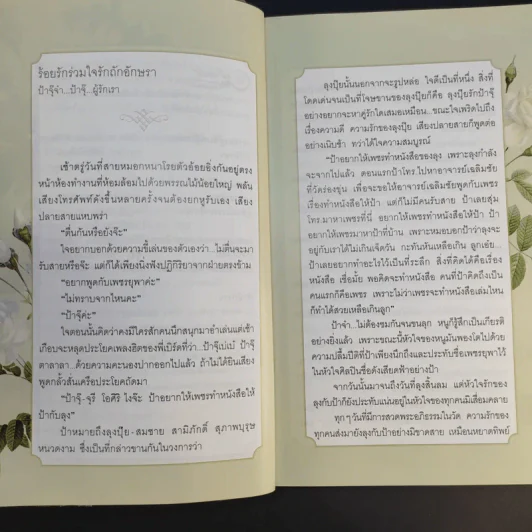 ร้อยรักร่วมใจรักถักอักษรา
ป้าจุ๊จ๋า...ป้าจุ๊...ผู้รักเรา
เช้าตรู่วันที่สายหมอกหนาโรยตัวอ้อยอิ่งกันอยู่ตรง
หน้าห้องทำงานที่ห้อมล้อมไปด้วยพรรณไม้น้อยใหญ่ พลัน
เสียงโทรศัพท์ดังขึ้นหลายครั้งจนต้องยกหูรับเอง เสียง
ปลายสายแหบพร่า
"ตื่นกันหรือยังจ๊ะ"
ใจอยากบอกด้วยความขี้เล่นของตัวเองว่า..ไม่ตื่นจะมา
รับสายหรือจ๊ะ แต่ก็ได้เพียงนิ่งฟังปฏิกิริยาจากฝ่ายตรงข้าม
"อยากพูดกับเพชรยุพาค่ะ"
"ไม่ทราบจากไหนคะ"
"ป้าจุ๊ค่ะ"
ใจตอนนั้นคิดว่าคงมีใครสักคนนึกสนุกมาอำเล่นแต่เช้า
เกือบจะหลุดประโยคเพลงฮิตของพี่เบิร์ดที่ว่า...ป้าจุ๊เบ่เบ๋ ป้าจุ๊
ตาลาลา...ด้วยความคะนองปากออกไปแล้ว ถ้าไม่ได้ยินเสียง
พูดกลั้วสั่นเครือประโยคถัดมา
"ป้าจุ๊-จุรี โอศิริ ไงจ๊ะ ป้าอยากให้เพชรทำหนังสือให้
ป้ากับลุง"
ป้าหมายถึงลุงปุ๊ย-สมชาย สามิภักดิ์ สุภาพบุรุษ
หนวดงาม ซึ่งเป็นที่กล่าวขานกันในวงการว่า
ลุงปุ๊ยนั้นนอกจากจะรูปหล่อ ใจดีเป็นที่หนึ่ง สิ่งที่
โดดเด่นจนเป็นที่โจษขานของลุงปุ๊ยก็คือ ลุงปุ๊ยรักป้าจุ๊
อย่างอยากจะหาคู่รักใดเสมอเหมือน...ขณะใจเพริดไปถึง
เรื่องความดี ความรักของลุงปุ๊ย เสียงปลายสายก็พูดต่อ
อย่างเนิบช้า ทว่าได้ใจความสมบูรณ์
"ป้าอยากให้เพชรทำหนังสือของลุง เพราะลุงกำลัง
จะจากไปแล้ว ตอนแรกป้าโทร.ไปหาอาจารย์เฉลิมชัย
ที่วัดร่องขุ่น เพื่อจะขอให้อาจารย์เฉลิมชัยพูดกับเพชร
เรื่องทำหนังสือให้ป้า แต่ก็ไม่มีคนรับสาย ป้าเลยสุ่ม
โทร.มาหาเพชรที่นี่ อยากให้เพชรทำหนังสือให้ป้า ป้า
อยากให้เพชรมาหาป้าที่บ้าน เพราะหมอบอกป้าว่าลุงจะ
อยู่กับเราได้ไม่เกินเจ็ดวัน กะทันหันเหลือเกิน ลูกเอ๋ย...
ป้าเลยอยากทำอะไรไว้เป็นที่ระลึก สิ่งที่คิดได้คือเรื่อง
หนังสือ เชื่อมั้ย พอคิดจะทำหนังสือ คนที่ป้าคิดถึงเป็น
คนแรกก็คือเพชร เพราะไม่ว่าเพชรจะทำหนังสือเล่มไหน
ก็ทำได้สวยเหลือเกินลูก"
ป้าจ๋า...ไม่ต้องชมกันจนขนลุก หนูก็รู้สึกเป็นเกียรติ
อย่างยิ่งแล้ว เพราะขณะนี้หัวใจของหนูมันพองโตไปด้วย
ความปลื้มปีติที่ป้าเพียงนึกถึงและประทับชื่อเพชรยุพาไว้
ในหัวใจศิลปินชื่อดังเสียดฟ้าอย่างป้า
จากวันนั้นมาจนถึงวันที่ลุงสิ้นลม แต่หัวใจรักของ
ลุงกับป้าก็ยังประทับแน่นอยู่ในหัวใจของทุกคนมิเสื่อมคลาย
ทุกๆวันที่มีการสวดพระอภิธรรมในวัด ความรักของ
ทุกคนส่งมายังลุงกับป้าอย่างมิขาดสาย เหมือนหยาดทิพย์